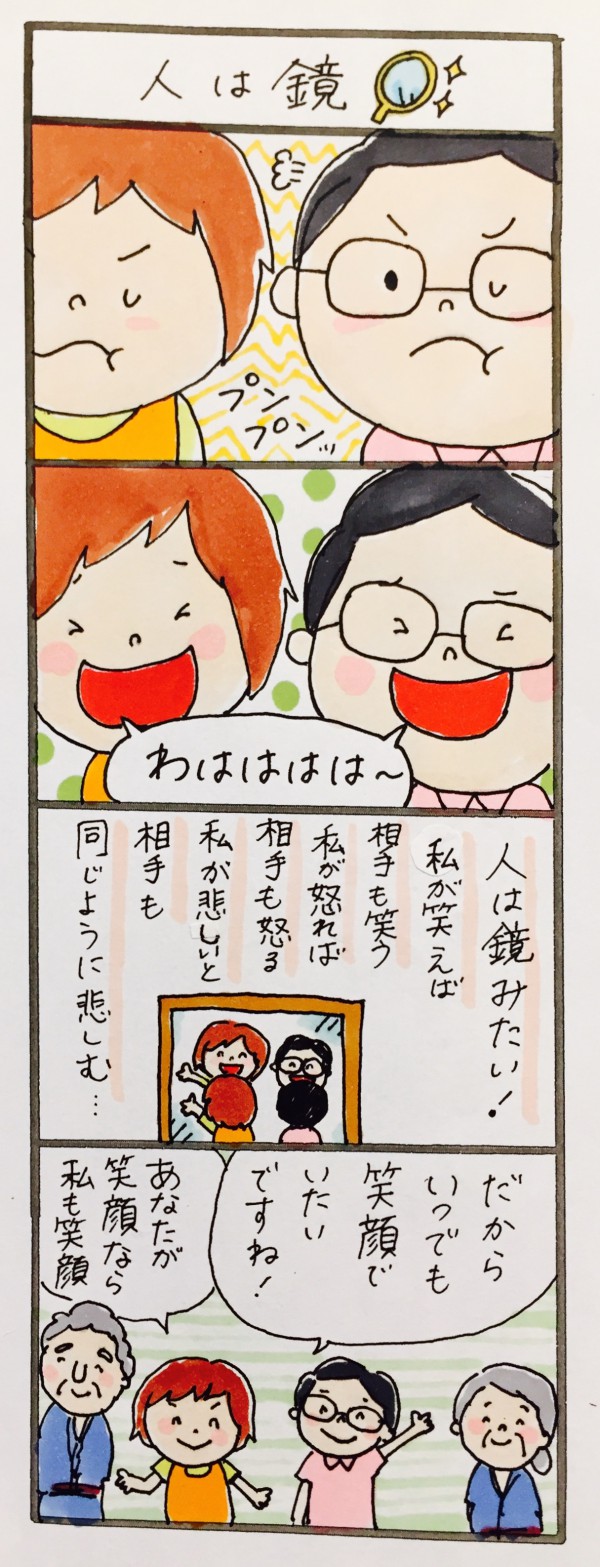 人は鏡
プン
プンッ
わはははは～
人は鏡みたい!
私が笑えば
相手も笑う
私が怒れば
相手も怒る
私が悲しいと
相手も
同じように悲しむ…
だから
いつでも
笑顔で
いたい
ですね!
あなたが
笑顔なら
私も笑顔